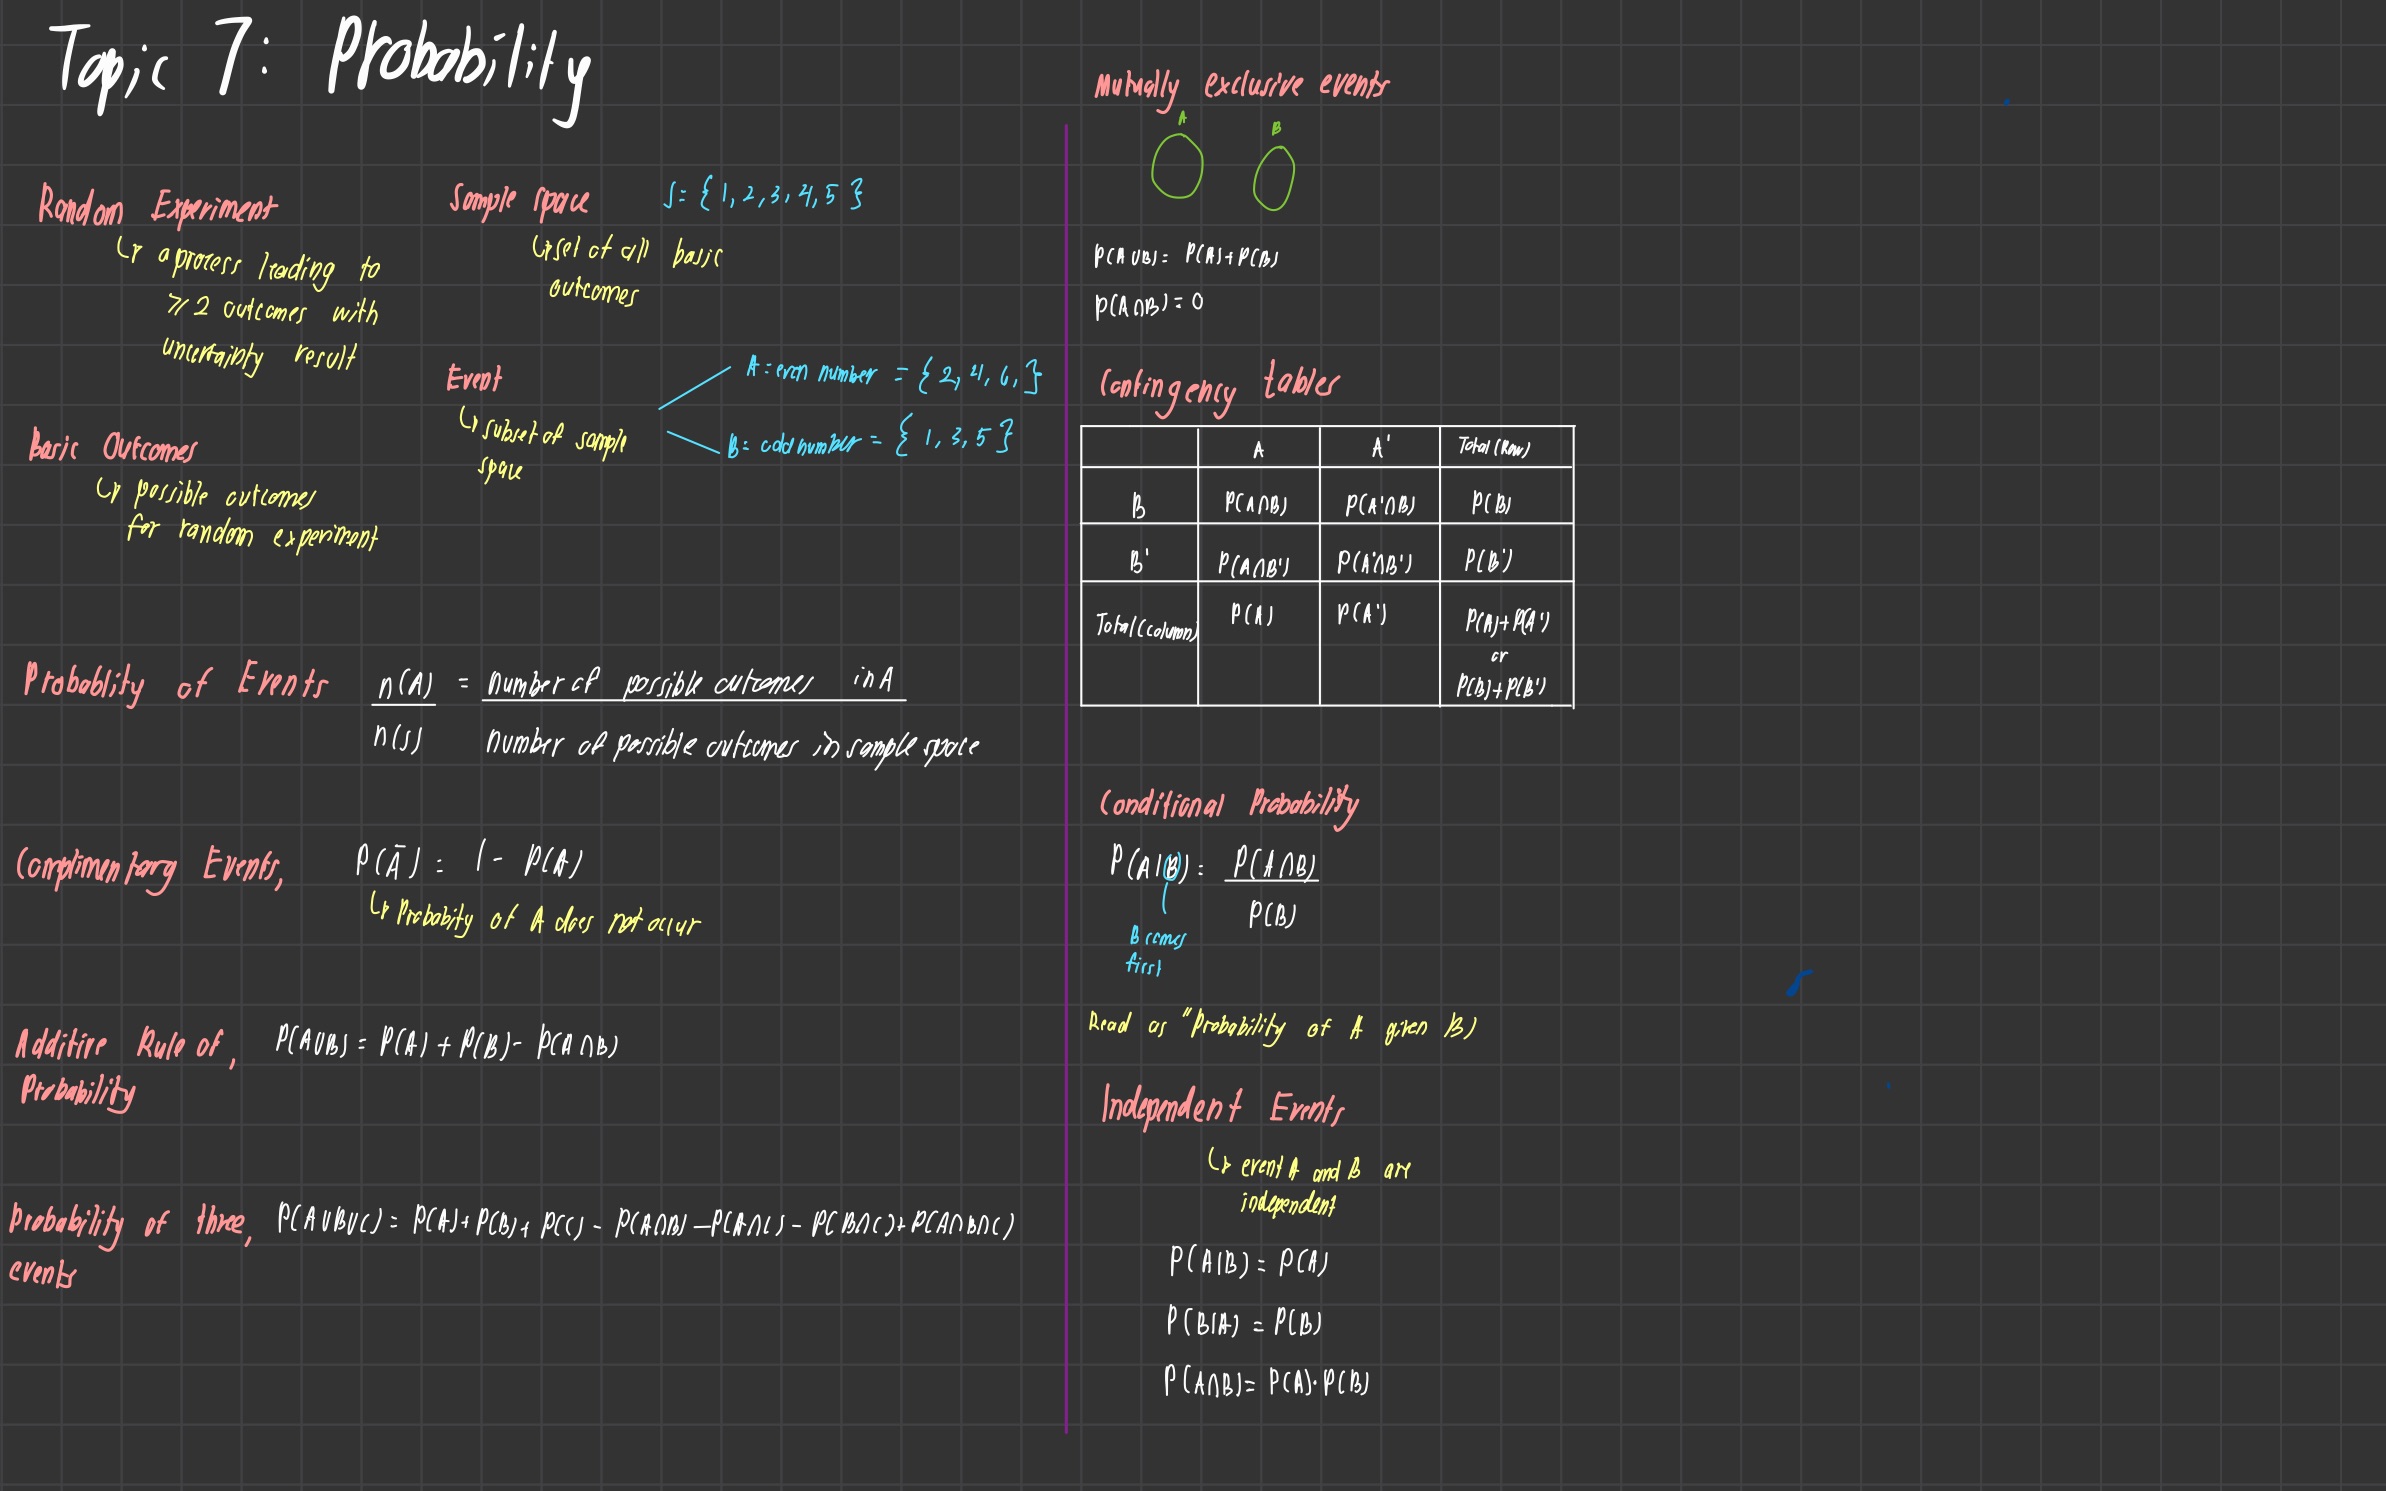 Topic 7: Probability
Random Experiment
↳ a process leading to
≥ 2 outcomes with
uncertainty result
Basic Outcomes
↳ possible outcomes
for random experiment
Sample space S = { 1, 2, 3, 4, 5 }
↳ set of all basic
outcomes
Event
↳ subset of sample
space
A = even number = { 2, 4, 6, }
B = odd number = { 1, 3, 5 }
Probablity of Events n(A)/n(s) = number of possible outcomes in A / number of possible outcomes in sample space
Complimentary Events, P(Ā) = 1 - P(A)
↳ Probabity of A does not occur
Additive Rule of, P(A∪B) = P(A) + P(B) - P(A∩B)
Probability
Probability of three, P(A∪B∪C) = P(A) + P(B) + P(C) - P(A∩B) - P(A∩C) - P(B∩C) + P(A∩B∩C)
events
Mutually exclusive events
A B
P(A∪B) = P(A) + P(B)
P(A∩B) = 0
Contingency tables
A A' Total (Row)
B P(A∩B) P(A'∩B) P(B)
B' P(A∩B') P(A'∩B') P(B')
Total (column) P(A) P(A') P(A) + P(A')
or
P(B) + P(B')
Conditional Probability
P(A|B) = P(A∩B) / P(B)
B comes
first
Read as "Probability of A given B)
Independent Events
↳ event A and B are
independent
P(A|B) = P(A)
P(B|A) = P(B)
P(A∩B) = P(A)·P(B)